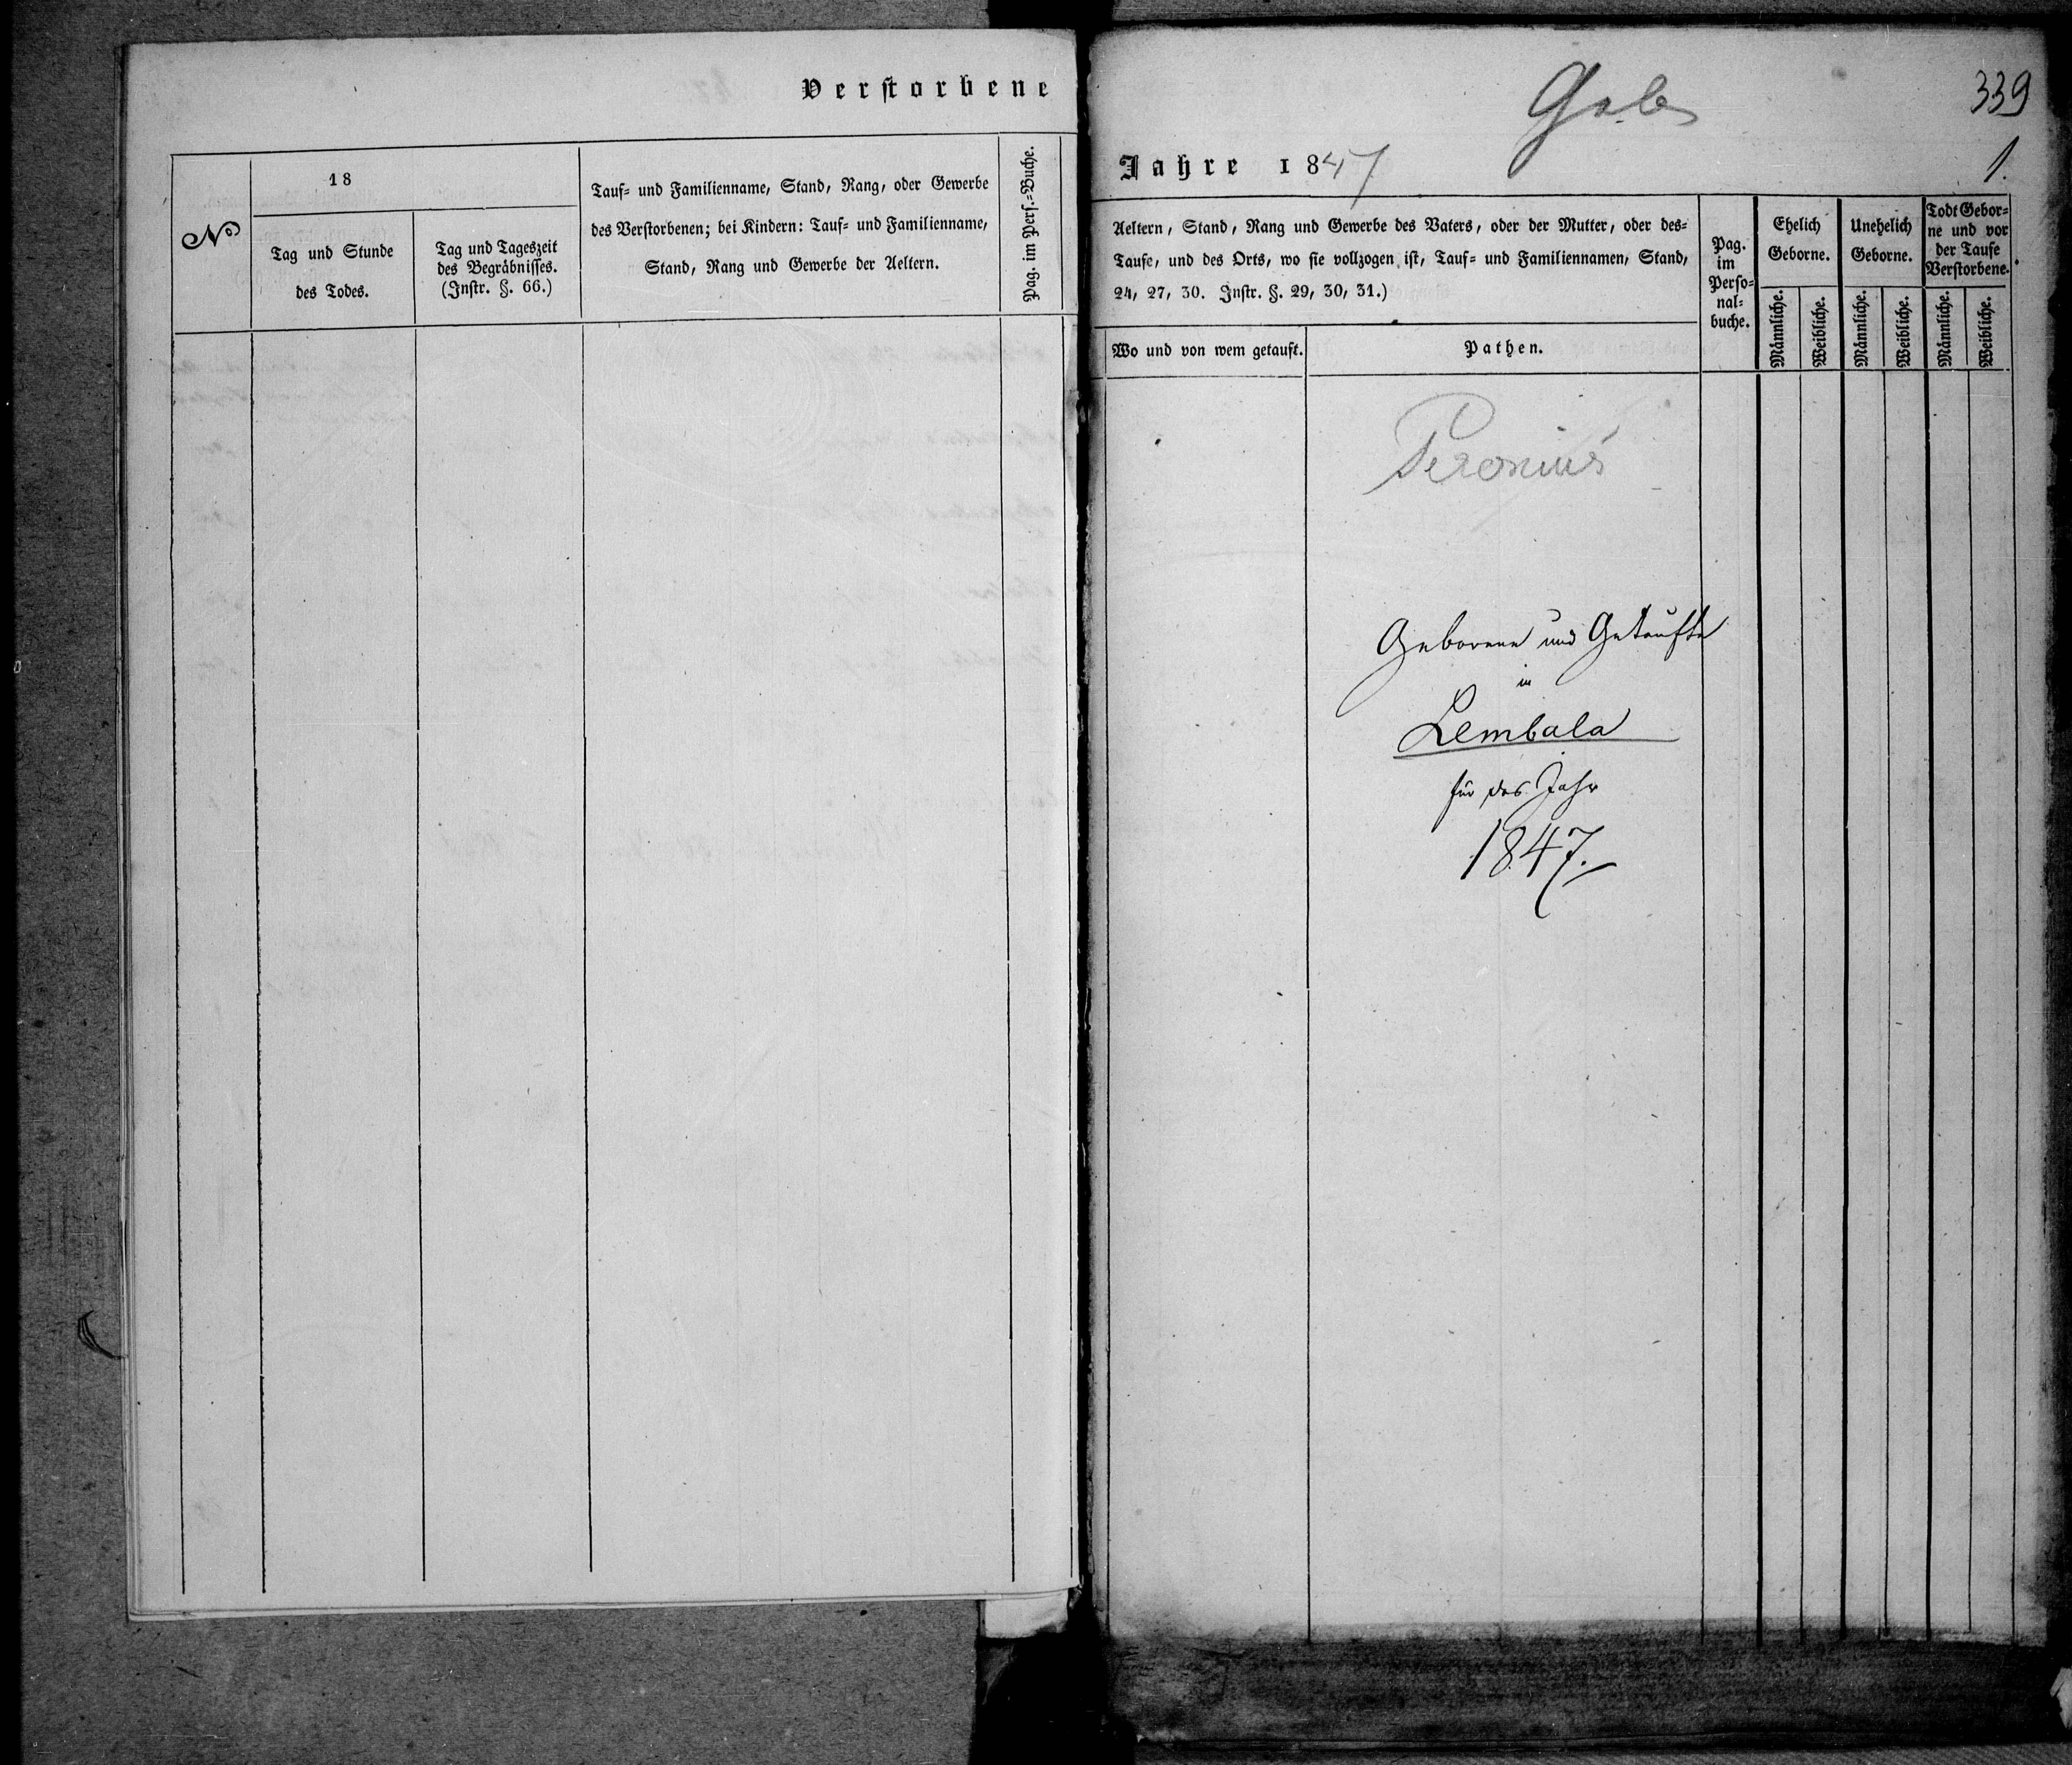 Verstorbene
№
18
Tag und Stunde
des Todes.
Tag und Tageszeit
des Begräbnisses.
(Instr. §. 66.)
Tauf- und Familienname, Stand, Rang, oder Gewerbe
des Verstorbenen; bei Kindern: Tauf- und Familienname,
Stand, Rang und Gewerbe der Aeltern.
Pag. im Pers.-Buche.
339
1.
Jahre 1847
Aeltern, Stand, Rang und Gewerbe des Vaters, oder der Mutter, oder des-
Taufe, und des Orts, wo sie vollzogen ist, Tauf- und Familiennamen, Stand,
24, 27, 30. Instr. §. 29, 30, 31.)
Wo und von wem getauft.
Pathen.
Pag.
im
Perso-
nal-
buche.
Ehelich
Geborne.
Männliche.
Weibliche.
Unehelich
Geborne.
Männliche.
Weibliche.
Todt Gebor-
ne und vor
der Taufe
Verstorbene.
Männliche.
Weibliche.
Geborene und Getaufte
in
Lembala
für das Jahr
1847.